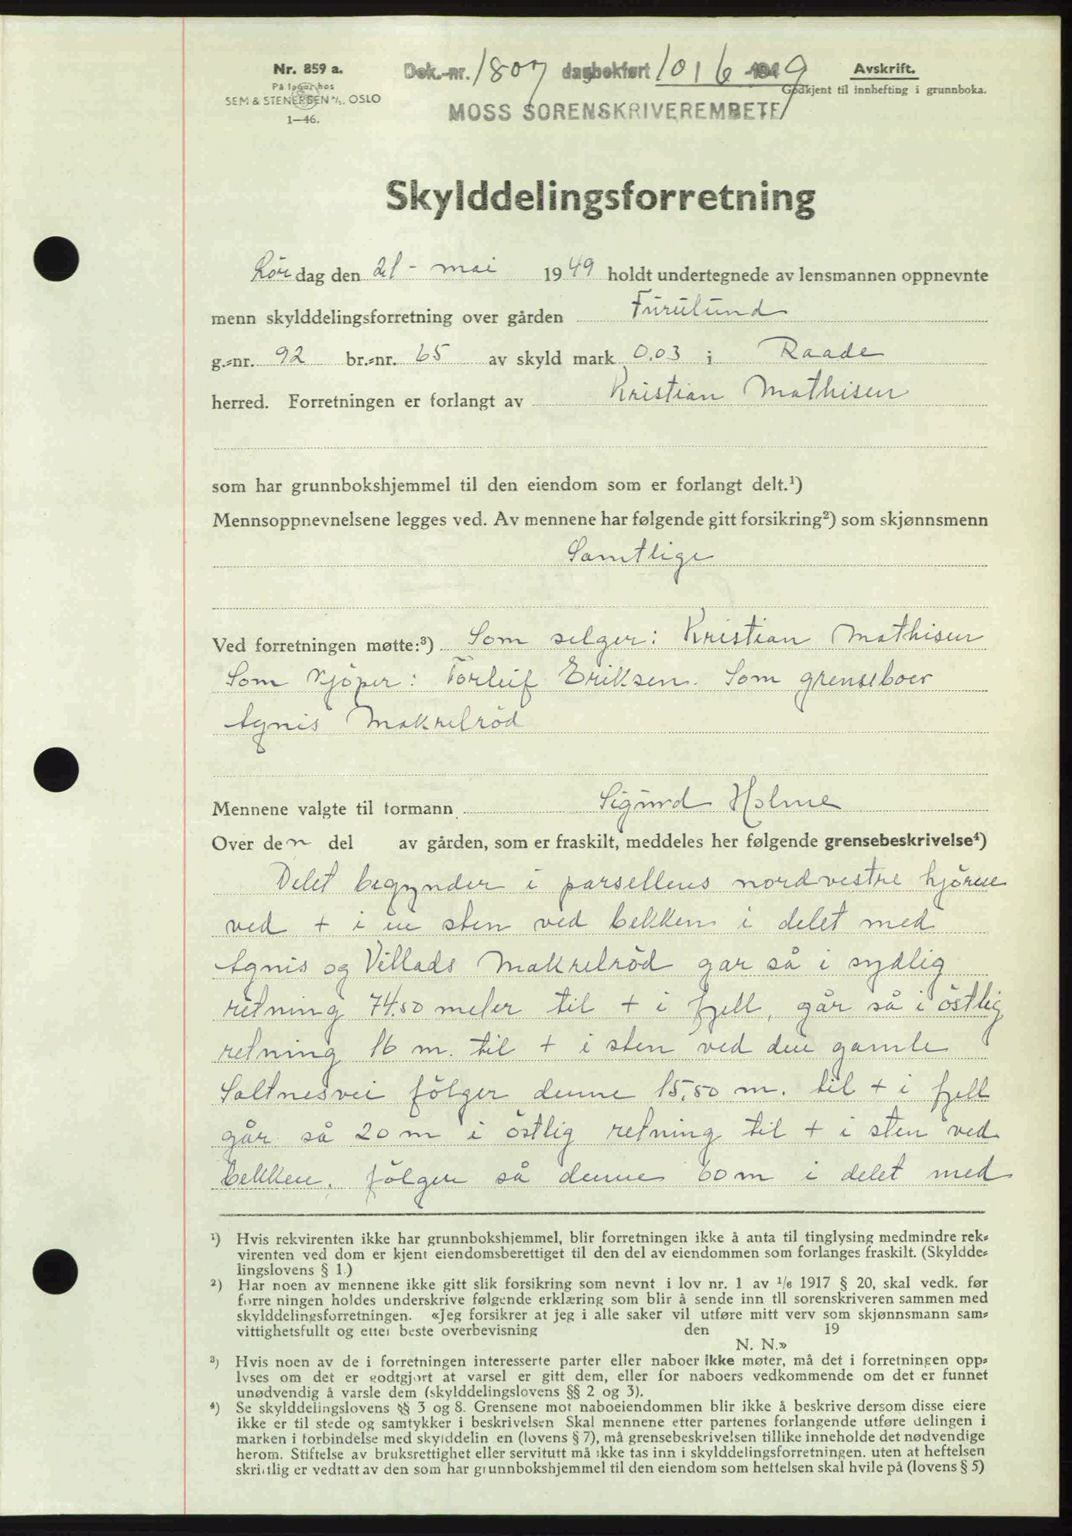 Nr. 859 a.
På lager hos
SEM & STENERSEN A/S, OSLO
1—46.
Dok.-nr. 1807 dagbokført 10/6 1949
MOSS SORENSKRIVEREMBETE
Avskrift.
Godkjent til innhefting i grunnboka.
Skylddelingsforretning
Lördag den 21- mai 1949 holdt undertegnede av lensmannen oppnevnte
menn skylddelingsforretning over gården Furulund
g.-nr. 92 br.-nr. 65 av skyld mark 0.03 i Raade
herred. Forretningen er forlangt av Kristian Mathisen
som har grunnbokshjemmel til den eiendom som er forlangt delt.¹)
Mennsoppnevnelsene legges ved. Av mennene har følgende gitt forsikring²) som skjønnsmenn
Samtlige
Ved forretningen møtte:³) Som selger: Kristian Mathisen
Som kjöper: Torleif Eriksen. Som grenseboer
Agnis Makrelröd
Mennene valgte til formann Sigurd Holme
Over den del av gården, som er fraskilt, meddeles her følgende grensebeskrivelse⁴)
Delet begynder i parsellens nordvestre hjörne
ved + i en sten ved bekken i delet med
Agnis og Villads Makrelröd gar så i sydlig
retning 74.50 meter til + i fjell, går så i östlig
retning 16 m. til + i sten ved den gamle
Saltnesvei fölger denne 15,50 m. til + i fjell
går så 20 m i östlig retning til + i sten ved
bekken, fölger så denne 60 m i delet med
¹) Hvis rekvirenten ikke har grunnbokshjemmel, blir forretningen ikke å anta til tinglysing medmindre rek-
virenten ved dom er kjent eiendomsberettiget til den del av eiendommen som forlanges fraskilt. (Skyldde-
lingslovens § 1.)
²) Har noen av mennene ikke gitt slik forsikring som nevnt i lov nr. 1 av 1/6 1917 § 20, skal vedk. før
forretningen holdes underskrive følgende erklæring som blir å sende inn til sorenskriveren sammen med
skylddelingsforretningen. «Jeg forsikrer at jeg i alle saker vil utføre mitt verv som skjønnsmann sam-
vittighetsfullt og etter beste overbevisning den 19
N. N.»
³) Hvis noen av de i forretningen interesserte parter eller naboer ikke møter, må det i forretningen opp-
lyses om det er godtgjort at varsel er gitt dem, eller for naboers vedkommende om det er funnet
unødvendig å varsle dem (skylddelingslovens §§ 2 og 3).
⁴) Se skylddelingslovens §§ 3 og 8. Grensene mot naboeiendommen blir ikke å beskrive dersom disse eiere
ikke er til stede og samtykker i beskrivelsen Skal mennene etter partenes forlangende utføre delingen i
marken i forbindelse med skylddelingen (lovens § 7), må grensebeskrivelsen tillike inneholde det nødvendige
herom. Stiftelse av bruksrettighet eller servitutt må ikke tas inn i skylddelingsforretningen, uten at heftelsen
skriftlig er vedtatt av den som har grunnbokshjemmel til den eiendom som heftelsen skal hvile på (lovens § 5)